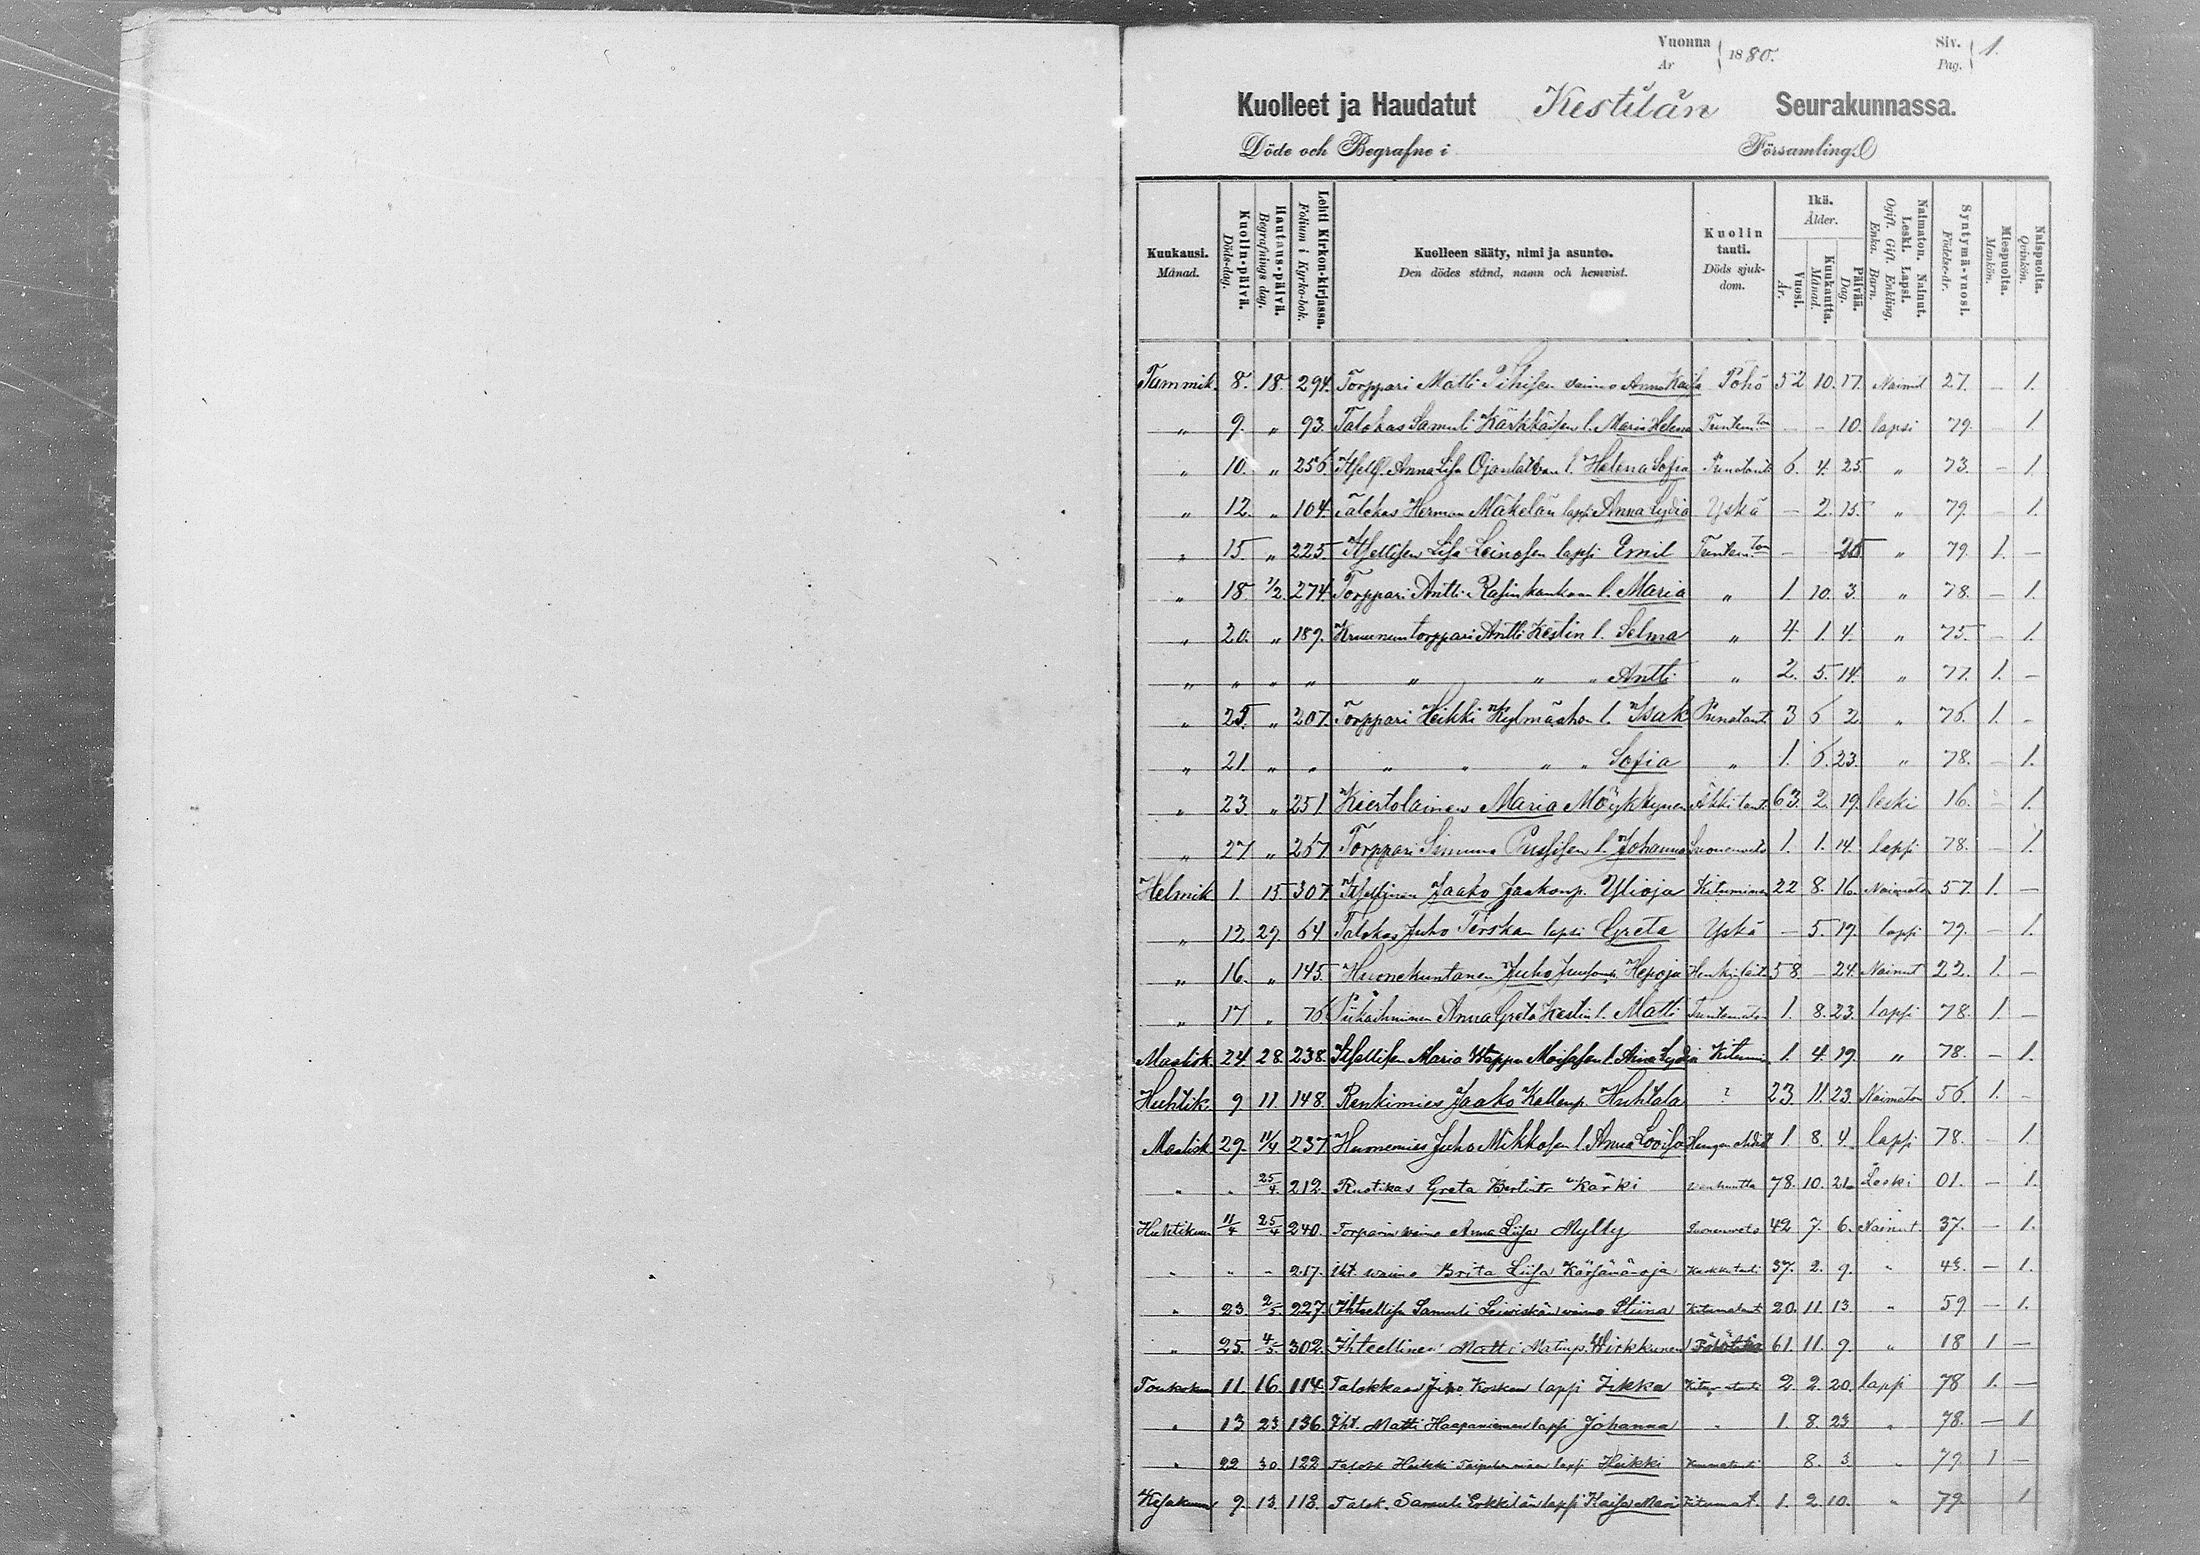 Vuonna 1880. Siv. 1.
Ar Pag.
Kuolleet ja Haudatut Kestilän Seurakunnassa.
Döde och Begrafne i Församling.
Kuukausi. Månad.
Kuolin-päivä. Döds-dag.
Hautaus-päivä. Begrafnings dag.
Lehti Kirkon-kirjassa. Folium i Kyrko-bok.
Kuolleen sääty, nimi ja asunto. Den dödes stånd, namn och hemvist.
Kuolin tauti. Döds sjukdom.
Ikä. Ålder.
Vuosi. År.
Kuukautta. Månad.
Päivää. Dag.
Naimaton. Nainut. Leski. Lapsi. Ogift. Gift. Enkling. Enka. Barn.
Syntymä-vuosi. Födelse-år.
Miespuolta. Mankön.
Naispuolta. Qvinkön.
Tammik. 8. 18. 294. Torppari Matti Pihisen vaimo Anna Kaisa Pöhö 52 10. 17. Nainut 27. – 1.
„ 9. „ 93. Talokas Samuli Kärkkäisen l. Maria Helena Tuntem:ton – – 10. lapsi 79. – 1.
„ 10. „ 256. Anna Lisa l. Helena Sofia 6. 4. 25. „ 73. – 1.
„ 12. „ 104. Talokas Herman Mäkelän lapsi Anna Lydia Yskä – 2. 15. „ 79. – 1.
„ 15 „ 225 Itsellisen Lisa Leinosen lapsi Emil Tuntem:ton – – „ 79. 1. –
„ 18. 1/2. 274. Torppari Antti l. Maria „ 1. 10. 3. „ 78. – 1.
„ 20. „ 189. Kruununtorppari Antti Kestin l. Selma „ 4. 1. 4. „ 75. – 1.
„ „ „ „ „ „ „ Antti „ 2. 5. 14. „ 77. 1. –
„ 25. „ 207. Torppari Heikki Kylmäahon l. Isak Punataut. 3 6 2 „ 76. 1. –
„ 21. „ „ „ „ „ „ Sofia „ 1. 6. 23. „ 78. – 1.
„ 23. „ 251 Kiertolainen Maria Möykkynen Äkkitaut. 63. 2. 19. leski 16. – 1.
„ 27 „ 267 Torppari Simuna l. Johanna Suonenveto 1. 1. 14. lapsi 78. – 1.
Helmik. 1. 15. 307. Itsellinen Jaako Jaakonp. Ylioja Kituminen 22 8. 16. Naimaton 57. 1. –
„ 12. 29. 64 Talokas Juho Terskan lapsi Greta Yskä – 5. 19. lapsi 79. – 1.
„ 16. „ 145. Huonekuntanen Juho Hepoja 58 – 24. Nainut 22. 1. –
„ 17 „ 76 Piikaihminen Anna Greta Kestin l. Matti 1. 8. 23. lapsi 78. 1. –
Maalisk. 24. 28. 238. Itsellisen Maria Moisasen l. Aina Lydia Kitumin. 1. 4. 19. „ 78. – 1.
Huhtik. 9 11. 148. Renkimies Jaako Huhtala ? 23. 11. 23. Naimaton 56. 1. –
Maalisk. 29. 11/4 237. Huonemies Juho Mikkosen l. Anna Loviisa 1. 8. 4. lapsi 78. – 1.
„ „ 25/4. 212. Rustikas Greta Kärki vanhuutta 78. 10. 21. Leski 01. – 1.
Huhtikuu 11/4 25/4 240. Torparin vaimo Anna Liisa Mylly Suonenveto 42 7. 6. Nainut 37. – 1.
„ „ „ 217. Iht. vaimo Brita Liisa Kärsänäoja 37. 2. 9. „ 43. – 1.
„ 23. 2/5. 227. Samuli Leiviskän vaimo Stiina Kitumataut 20. 11. 13. „ 59 – 1.
„ 25. 4/5. 302. Ihteellinen Matti Matinp. Wirkkunen 61. 11. 9. „ 18 1 –
Toukokuu 11. 16. 114 Talokkaan Juho Kosken lapsi Iikka 2. 2. 20. lapsi 78 1. –
„ 13. 23. 136. Iht. Matti Haapaniemen lapsi Johanna „ 1. 8. 23 „ 78. – 1
„ 22 30 122 Talokk Heikki lapsi Heikki 8. 3. „ 79 1 –
Kesäkuu 9. 13. 118. Talok. Samuli Eskkilän lapsi Kaisa Mari Kitumat. 1. 2. 10. „ 79 1